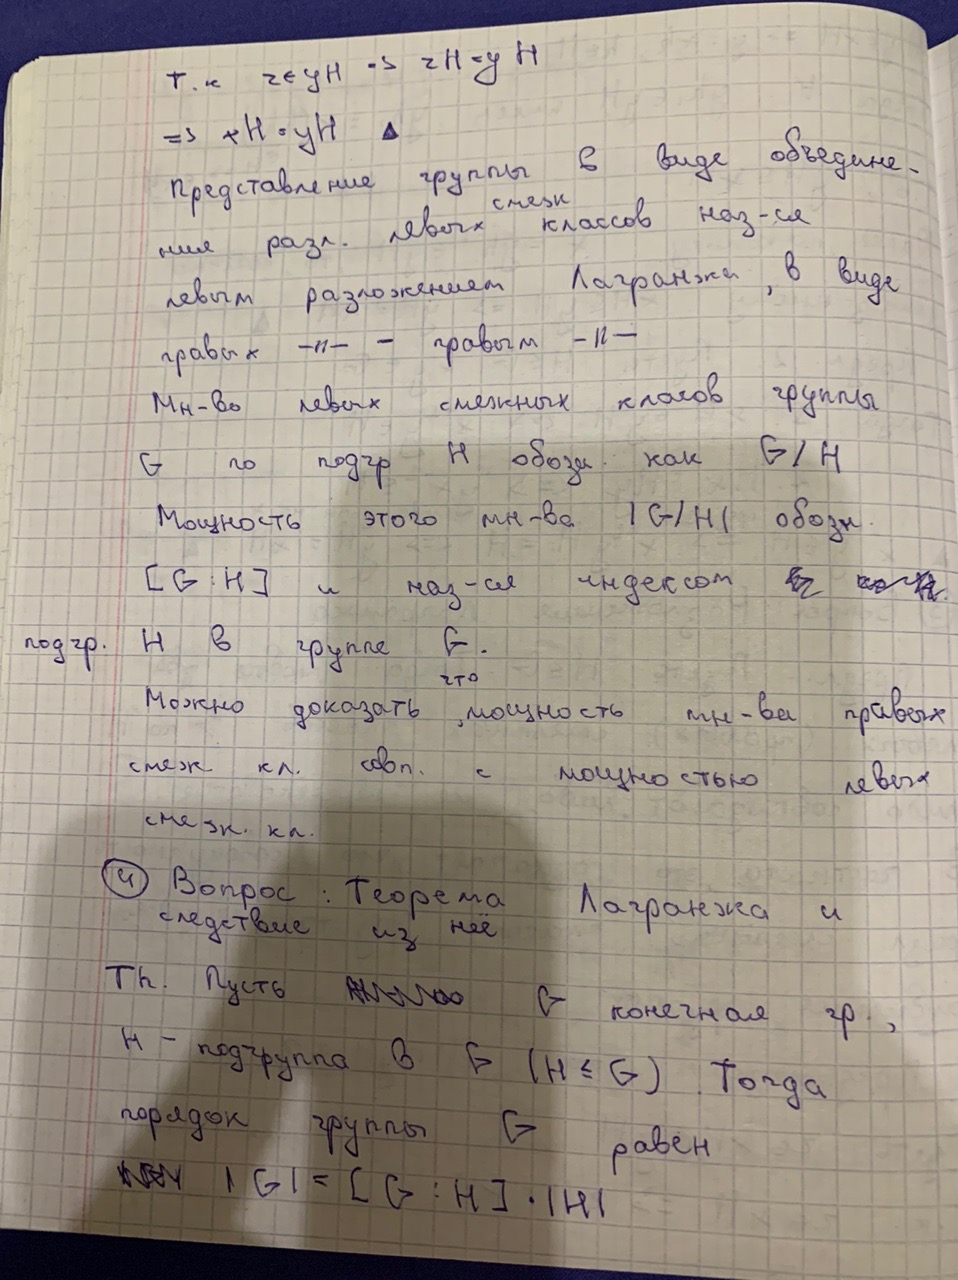 Т.к z∈yH => zH=yH
=> xH=yH ▲
Представление группы в виде объедине-
ния разл. левых смежн классов наз-ся
левым разложением Лагранжа, в виде
правых -||- - правым -||-
Мн-во левых смежных класов группы
G по подгр H обозн. как G/H
Мощность этого мн-ва |G/H| обозн.
[G:H] и наз-ся индексом
подгр. H в группе G.
Можно доказать, что мощность мн-ва правых
смеж кл. совп. с мощностью левых
смежн. кл.
④ Вопрос: Теорема Лагранжа и
следствие из неё
Th. Пусть G конечная гр.,
H - подгруппа в G (H ≤ G). Тогда
порядок группы G равен
|G| = [G:H]·|H|